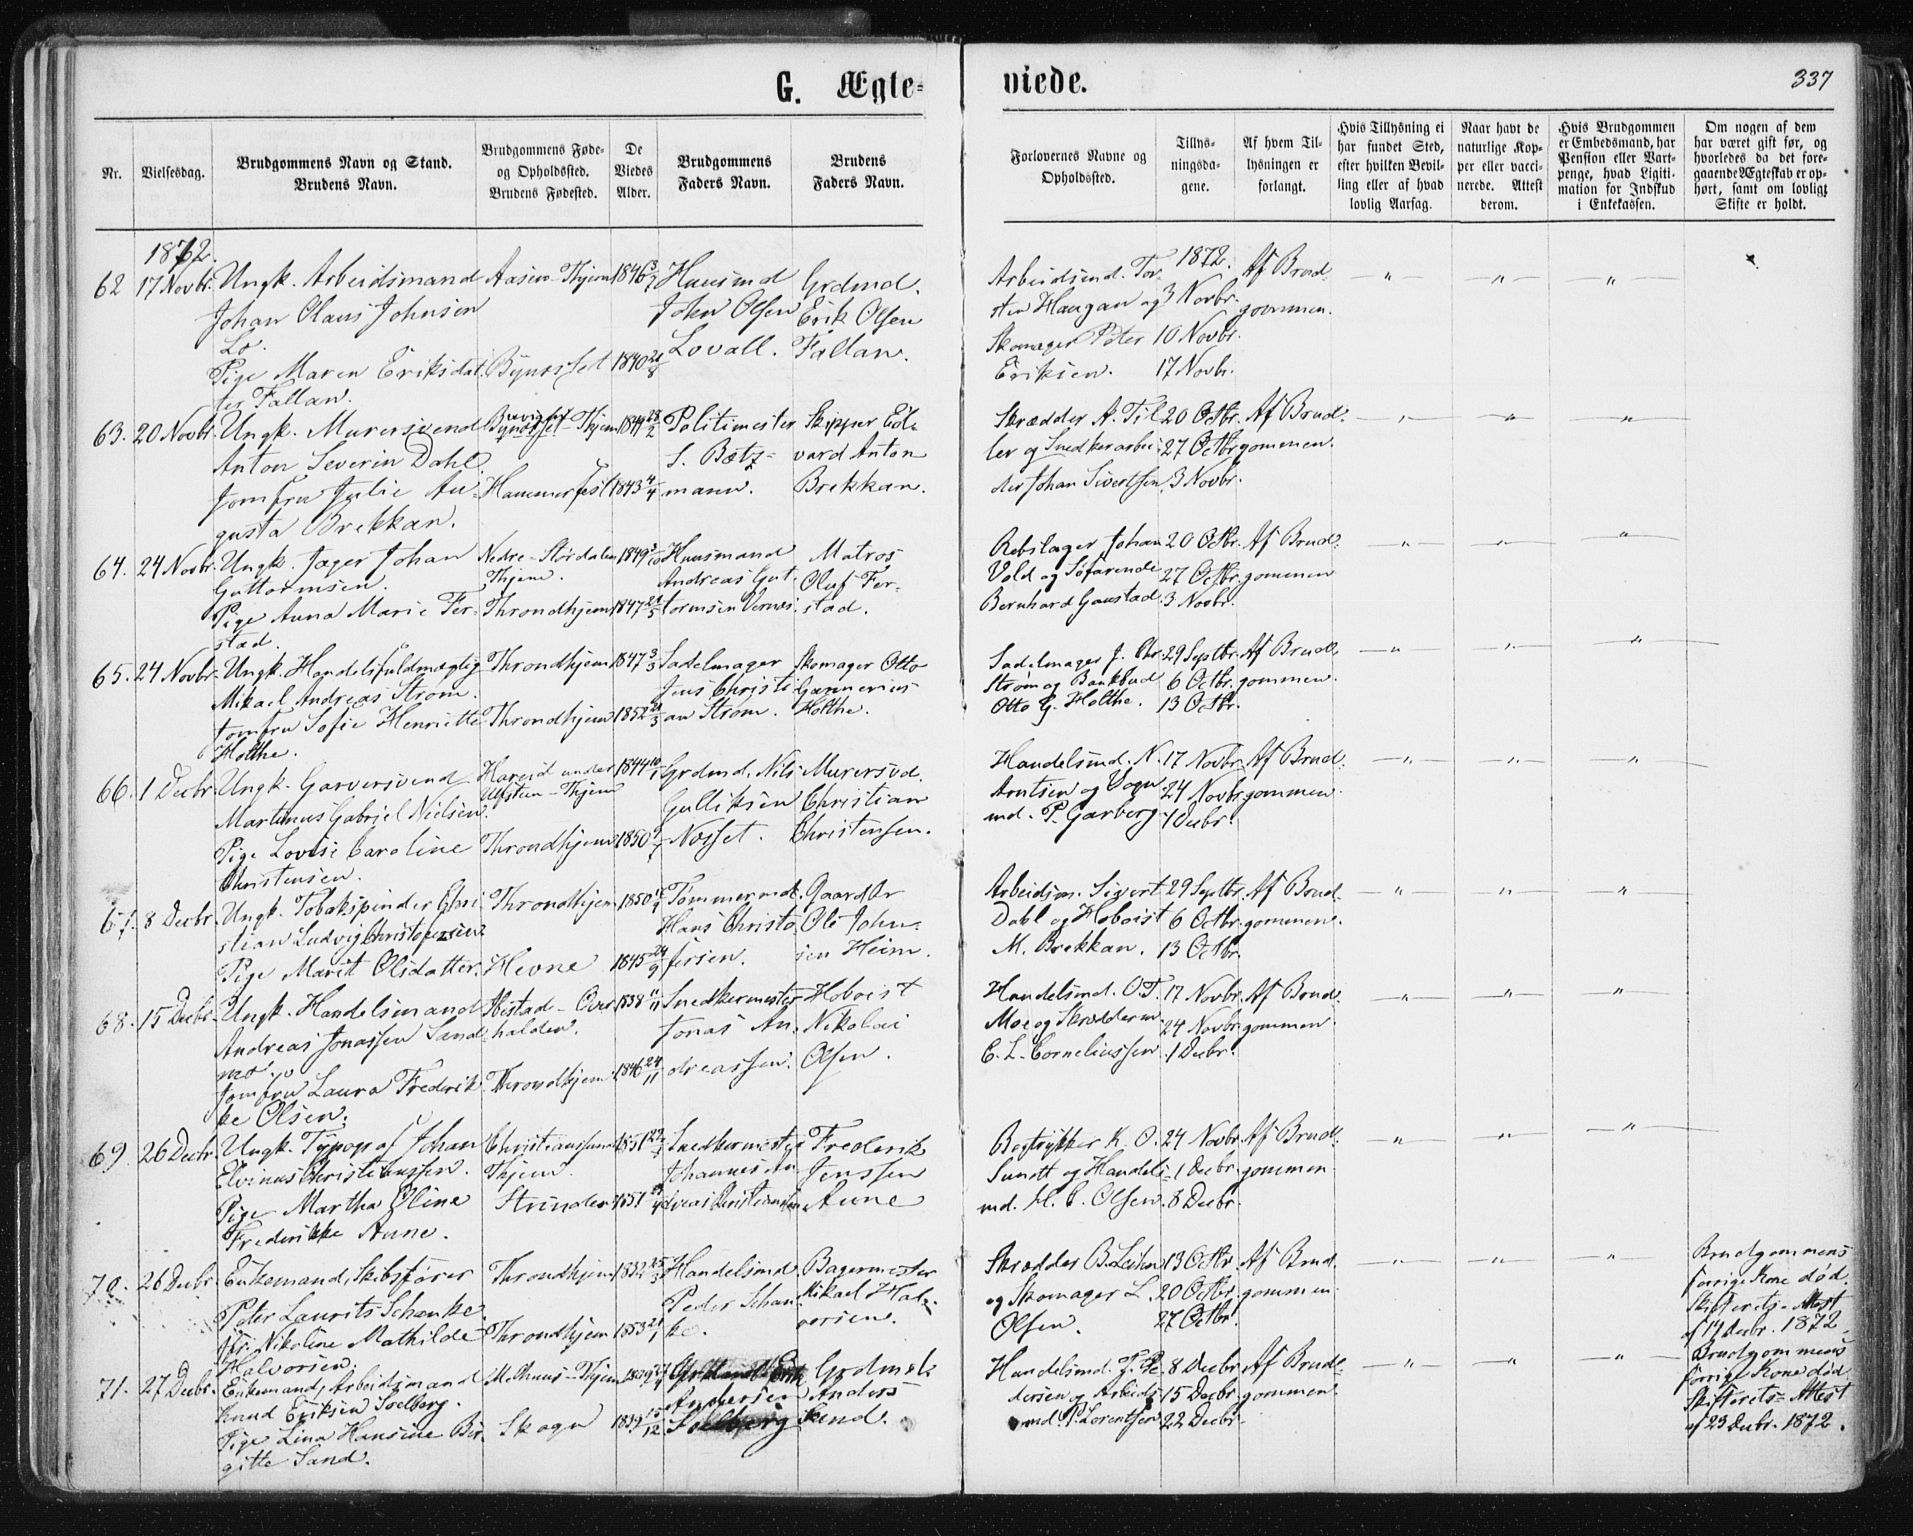 G. Ægte=
viede.
337
Nr.
Vielsesdag.
Brudgommens Navn og Stand.
Brudens Navn.
Brudgommens Føde-
og Opholdssted.
Brudens Fødested.
De
Viedes
Alder.
Brudgommens
Faders Navn.
Brudens
Faders Navn.
Forlovernes Navne og
Opholdssted.
Tillys-
ningsda-
gene.
Af hvem Til-
lysningen er
forlangt.
Hvis Tillysning ei
har fundet Sted,
efter hvilken Bevil-
ling eller af hvad
lovlig Aarsag.
Naar havt de
naturlige Kop-
per eller vacci-
nerede. Attest
derom.
Hvis Brudgommen
er Embedsmand, har
Pension eller Vart-
penge, hvad Ligiti-
mation for Indskud
i Enkekassen.
Om nogen af dem
har været gift før, og
hvorledes da det fore-
gaaende Ægteskab er op-
hørt, samt om lovligt
Skifte er holdt.
1872.
62 17 Novbr. Ungk. Arbeidsmand
Johan Olaus Johnsen
Lo.
Pige Maren Eriksdat
ter Fallan.
Aasen - Thjem
Bynæsset
1846 3/7
1840 21/8
Husmd
John Olsen
Lovall.
Grdmd.
Erik Olsen
Fallan.
Arbeidsmd. Tor
sten Haugan og
Skomager Peter
Eriksen.
1872.
3 Novbr.
10 Novbr.
17 Novbr.
Af Brud-
gommen.
63. 20 Novbr. Ungk. Murersvend
Anton Severin Dahl.
Jomfru Julie Au-
gusta Brekkan.
Bynæsset - Thjem
Hammerfest
1844 28/2
1843 4/4
Politimester
S. Bætz-
mann.
Skipper Ed-
vard Anton
Brekkan.
Skrædder A. Til
ler og Snedkerarbei-
der Johan Sivertsen
20 Octbr.
27 Octbr.
3 Novbr.
Af Brud-
gommen.
64. 24 Novbr. Ungk. Jæger Johan
Guttormsen.
Pige Anna Marie Fer-
stad.
Nedre - Stordalen
Thjem.
Throndhjem
1849
1847 21/5
Husmand
Andreas Gut-
tormsen Vernes.
Matros
Oluf Fer-
stad.
Rebslager Johan
Vold og Søfarende
Bernhard Gaustad.
20 Octbr.
27 Octbr.
3 Novbr.
Af Brud-
gommen
65. 24 Novbr. Ungk. Handelsfuldmægtig
Mikael Andreas Strøm.
Jomfru Sofie Henriette
Holthe.
Throndhjem
Throndhjem
1847 3/3
1852 21/3
Sadelmager
Jens Christi
an Strøm.
Skomager Otto
Gunnerius
Holthe.
Sadelmager J. Chr.
Strøm og Bankbud
Otto G. Holthe.
29 Septbr.
6 Octbr.
13 Octbr.
Af Brud-
gommen.
66. 1 Decbr. Ungk. Garversvend
Martinus Gabriel Nielsen.
Pige Lovise Caroline
Christensen.
Hareid under
Ulfsten - Thjem
Throndhjem
1844 10/1
1850
Grdmd. Nils
Gulliksen
Nosset.
Murersvd.
Christian
Christensen.
Handelsmd. N.
Arntsen og Vogn
md. P. Garberg.
17 Novbr.
24 Novbr.
1 Decbr.
Af Brud-
gommen.
67. 8 Decbr. Ungk. Tobakspinder Chri
stian Ludvig Christofersen
Pige Marit Olsdatter.
Throndhjem
Hevne
1850
1845 29/9
Tømmermd.
Hans Christo
fersen.
Gaardbr
Ole John-
sen Heim.
Arbeidsm. Sivert
Dahl og Hoboist
M. Brekkan.
29 Septbr.
6 Octbr.
13 Octbr.
Af Brud-
gommen.
68. 15 Decbr. Ungk. Handelsmand
Andreas Jonassen Sand
mo.
Jomfru Laura Fredrik-
ke Olsen.
- Over
halden.
Throndhjem
1838 11/11
1846 24/11
Snedkermester
Jonas An-
dreassen.
Hoboist
Nikolai
Olsen.
Handelsmd. O. T.
Moe og Skrædderm
C. L. Corneliussen.
17 Novbr.
24 Novbr.
1 Decbr.
Af Brud-
gommen.
69. 26 Decbr. Ungk. Typograf Johan
Elvinus Christiansen.
Pige Martha Eline
Frederikke Aune.
Christianssund
Thjem.
Strinden
1851
1851
Snedkermester
Johannes An
dreas Christiansen
Frederik
Jenssen
Aune
Bogtrykker K. O.
Sundt og Handels-
md. H. C. Olsen.
24 Novbr.
1 Decbr.
8 Decbr.
Af Brud-
gommen
70. 26 Decbr. Enkemand, Skibsfører
Peter Laurits Schanke.
Nikoline Mathilde
Halvorsen.
Throndhjem
Throndhjem
1832 25/3
1853 21/1
Handelsmd.
Peder Schan-
ke.
Bagermester
Mikael Hal-
vorsen.
Skrædder B. Leitem
og Skomager L.
Olsen.
13 Octbr.
20 Octbr.
27 Octbr.
Af Brud-
gommen
Brudgommens
forrige Kone død.
Skifterets-Attest
af 14 Decbr. 1872.
71. 27 Decbr. Enkemand, Arbeidsmand
Knud Eriksen Solberg.
Pige Lina Hansine Bir-
gitte Sand.
Melhuus - Thjem
Skogn
1839 15/12
Erik
Andersen
Solberg
Grdmd.
Anders
Sand.
Handelsmd. J. Pe-
dersen og Arbeids-
md P. Lorentsen
8 Decbr.
15 Decbr.
22 Decbr.
Af Brud-
gommen
Brudgommens
forrige Kone død
Skifterets-Attest
af 23 Decbr. 1872.